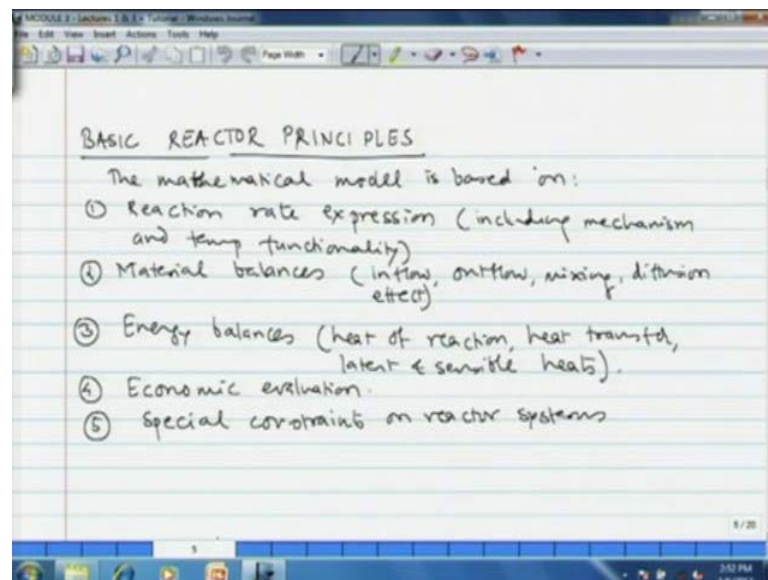 MODULE 2 - Lectures 1 & 3 + Tutorial - Windows Journal
File Edit View Insert Actions Tools Help
Page Width
BASIC REACTOR PRINCIPLES
The mathematical model is based on:
① Reaction rate expression (including mechanism
and temp functionality)
② Material balances (inflow, outflow, mixing, diffusion
effect)
③ Energy balances (heat of reaction, heat transfer,
latent & sensible heats).
④ Economic evaluation.
⑤ Special constraints on reactor systems
5
2:52 PM